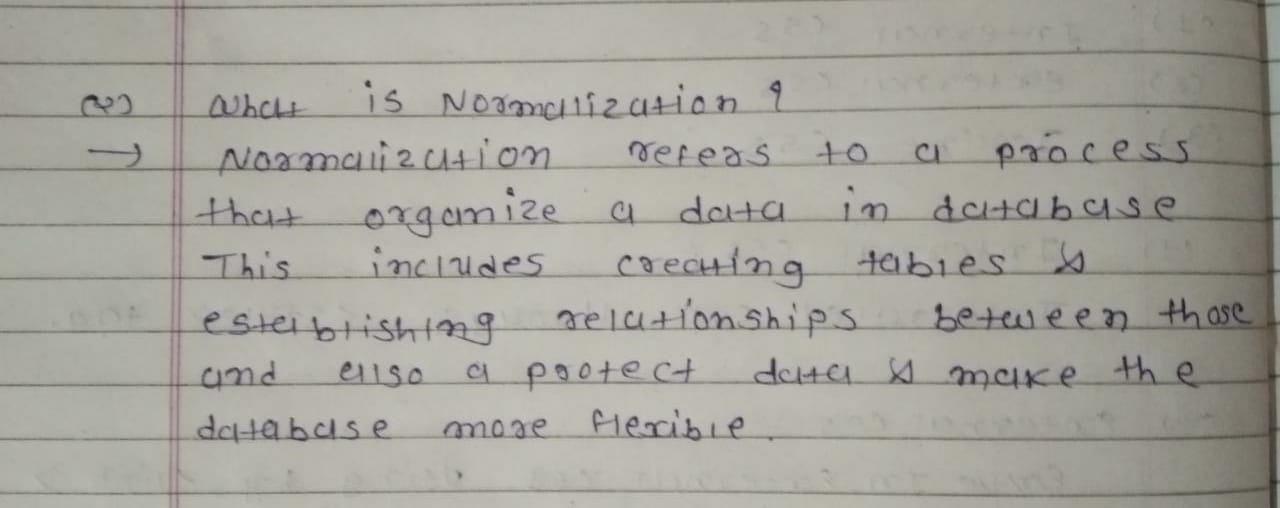 What is Normalization ?
→ Normalization refers to a process
that organize a data in database
This includes creating tables &
establishing relationships between those
and also a protect data & make the
database more flexible.